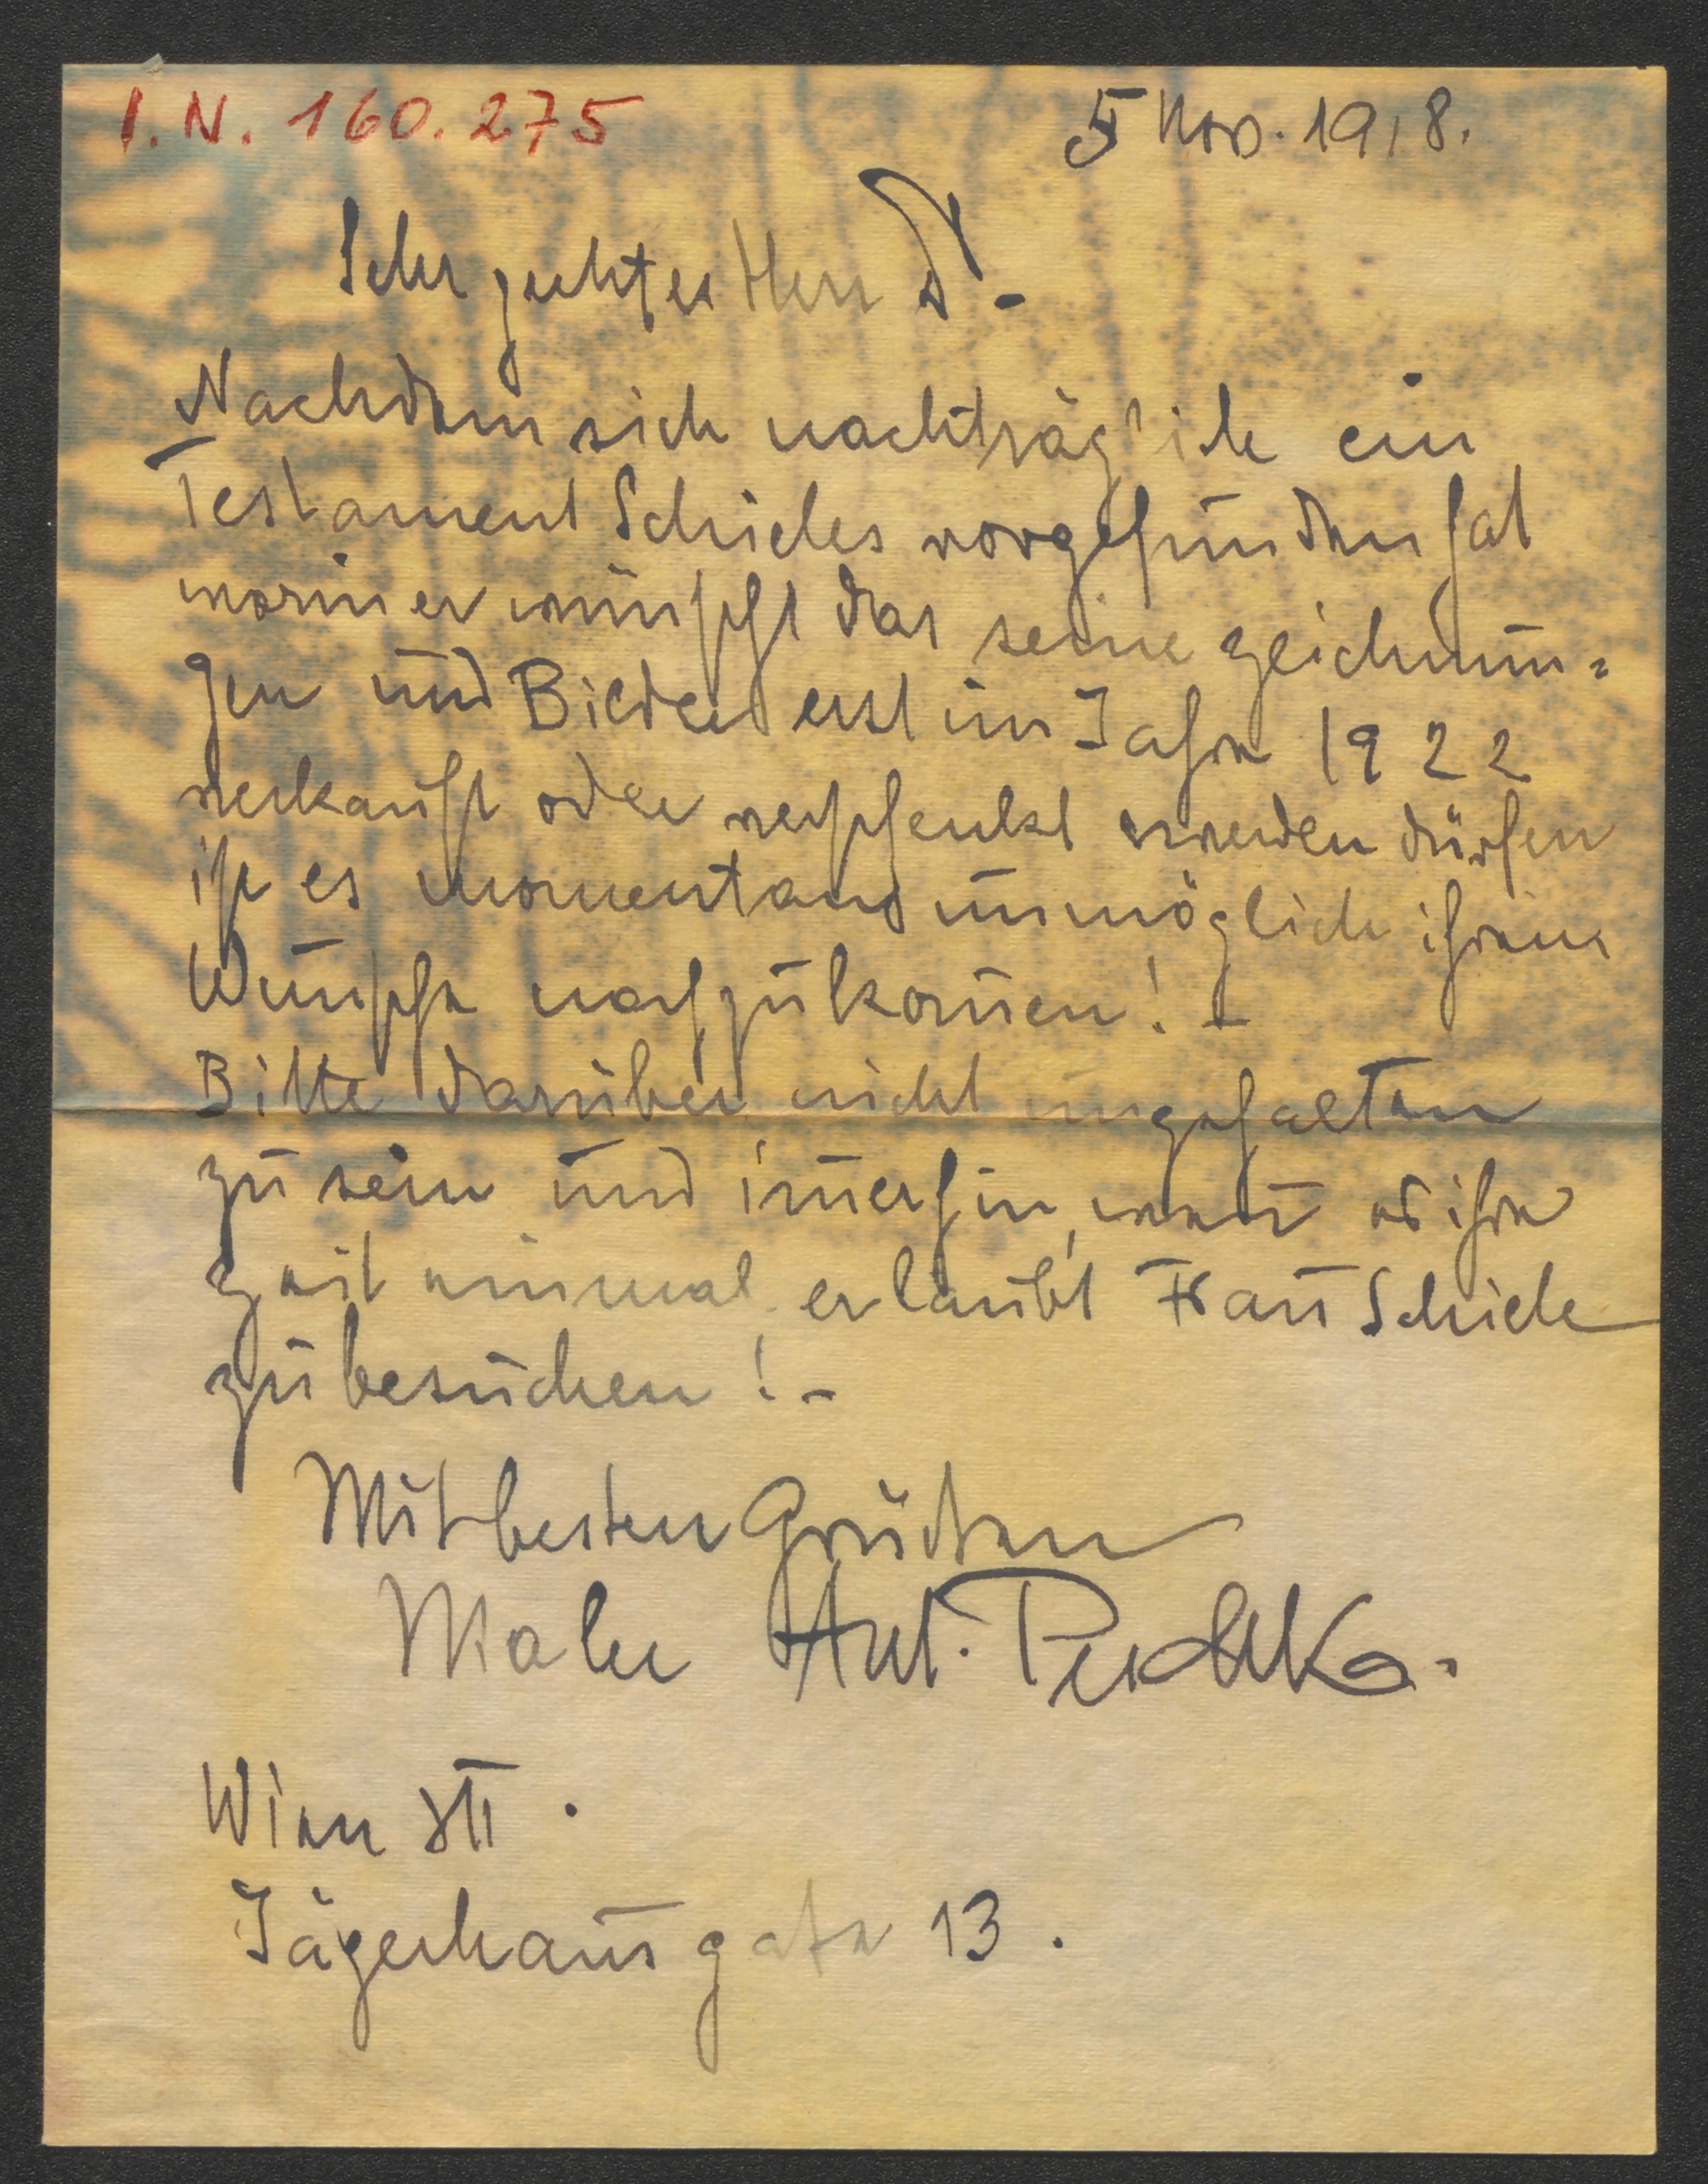 I.N. 160.275
5 Nov. 1918.
Sehr geehrter Herr Dr. -
Nachdem sich nachträglich ein
Testament Schieles vorgefunden hat
worin er wünscht das seine Zeichnun=
gen und Bilder erst im Jahre 1922
verkauft oder verschenkt werden dürfen
ist es momentan unmöglich ihrem
Wunsche nachzukom̄en! -
Bitte darüber nicht ungehalten
zu sein und im̄erhin, wenn es ihre
Zeit einmal erlaubt Frau Schiele
zu besuchen! -
Mit besten Grüßen
Maler Ant. Peschka.
Wien
Jägerhausgaße 13.